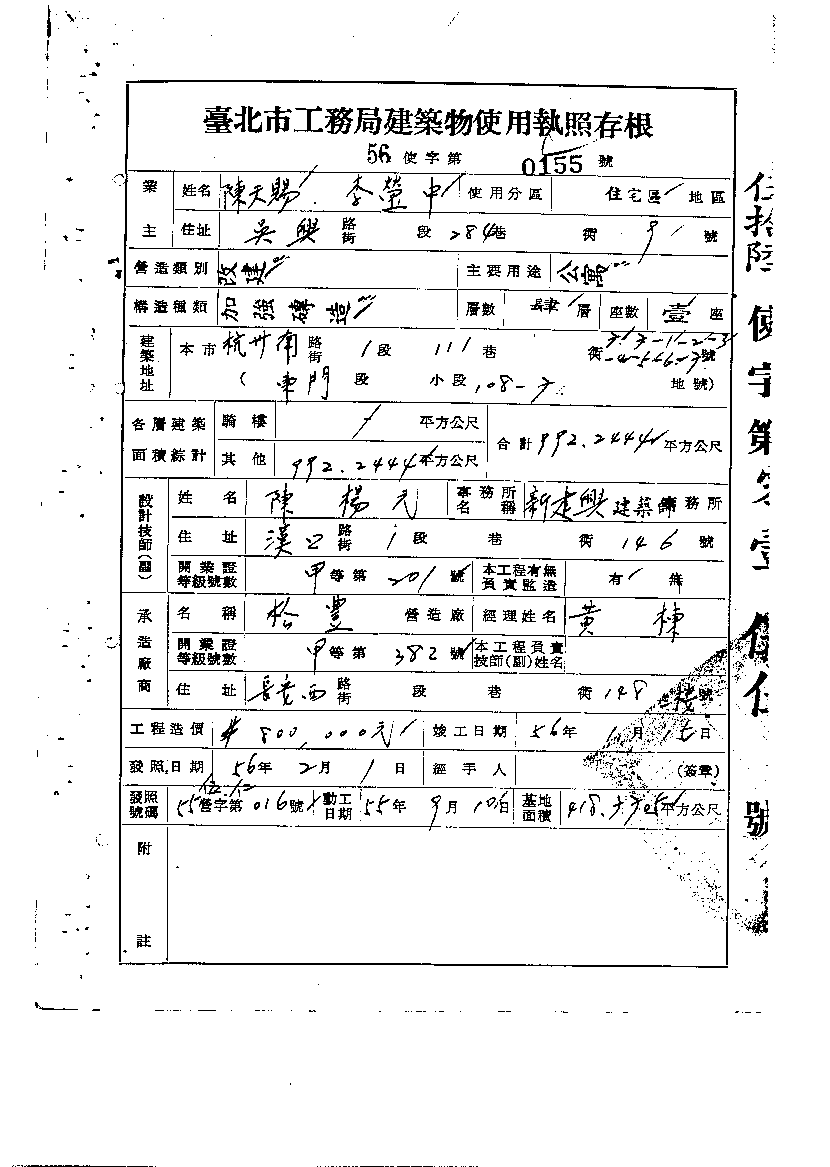 臺北市工務局建築物使用執照存根
56 使字第 0155 號
業主 姓名 陳天賜 李瑩中 使用分區 住宅區 地區
住址 吳興 路街 段 284巷 衖 9 號
營造類別 改建 主要用途 公寓
構造種類 加強磚造 層數 肆 層 座數 壹 座
建築地址 本市 杭州南 路街 1段 111巷 衖 3/3-1-2-3-4-5-6- 號
(東門 段 小段 108-3 地號)
各層建築面積綜計 騎樓 / 平方公尺 合計 992.2444 平方公尺
其他 992.2444 平方公尺
設計技師(副) 姓名 陳楊元 事務所名稱 新建興建築師事務所
住址 漢口 路街 1段 巷 衖 146 號
開業證等級號數 甲等第 201 號 本工程有無負責監造 有 無
承造廠商 名稱 松豐 營造廠 經理姓名 黃棟
開業證等級號數 甲等第 382 號 本工程負責技師(副)姓名
住址 長安西 路街 段 巷 衖 148 號
工程造價 800,000元 竣工日期 56年 1月 15日
發照日期 56年 2月 1日 經手人 (簽章)
發照號碼 55營字第016號 動工日期 55年 9月 10日 基地面積 418. 平方公尺
附註
伍拾陸 使字第 號